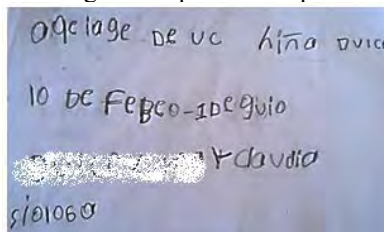 oqclage DE UC hiña DVIC
10 DE FEBEO-1DEguio
Y claudia
siolo6a